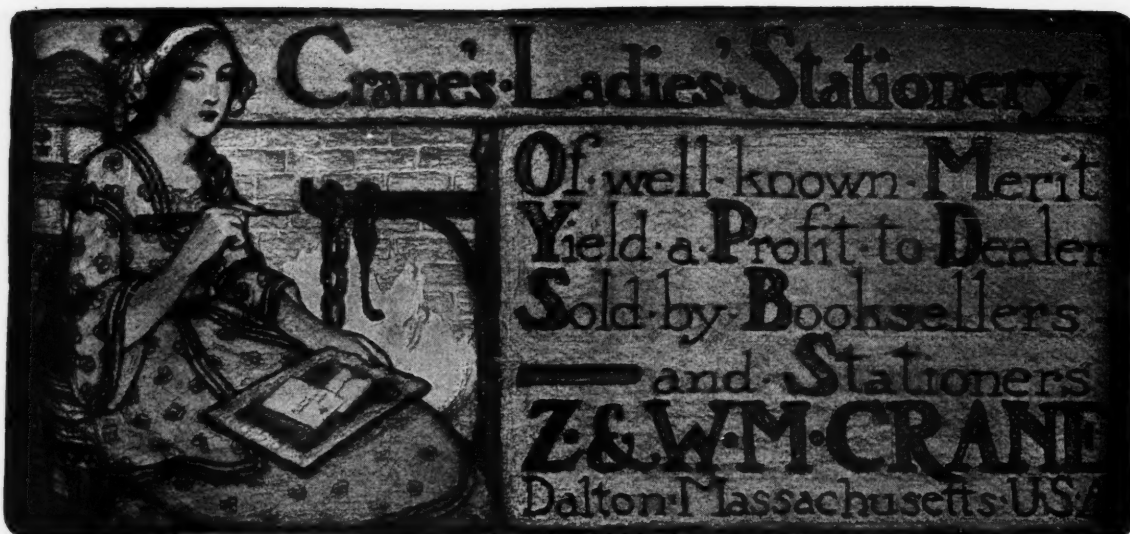 Crane's·Ladies'·Stationery·
Of·well·known·Merit
Yield·a·Profit·to·Dealer
Sold·by·Booksellers
and·Stationers
Z·&·W·M·CRANE
Dalton·Massachusetts·U·S·A